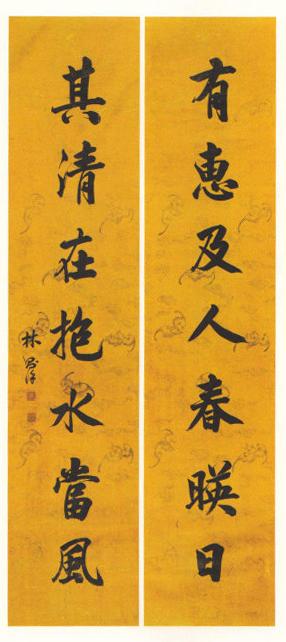 有惠及人春暎日
其清在抱水當風
林则徐